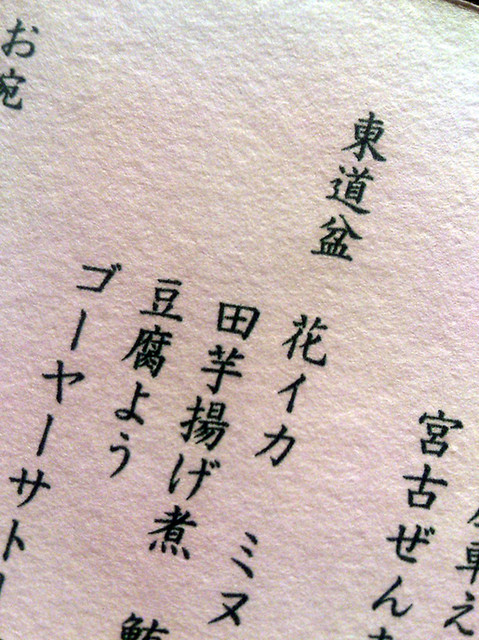 車え
宮古ぜん
東道盆
花イカ ミヌ
田芋揚げ煮
豆腐よう
ゴーヤーサト
お椀